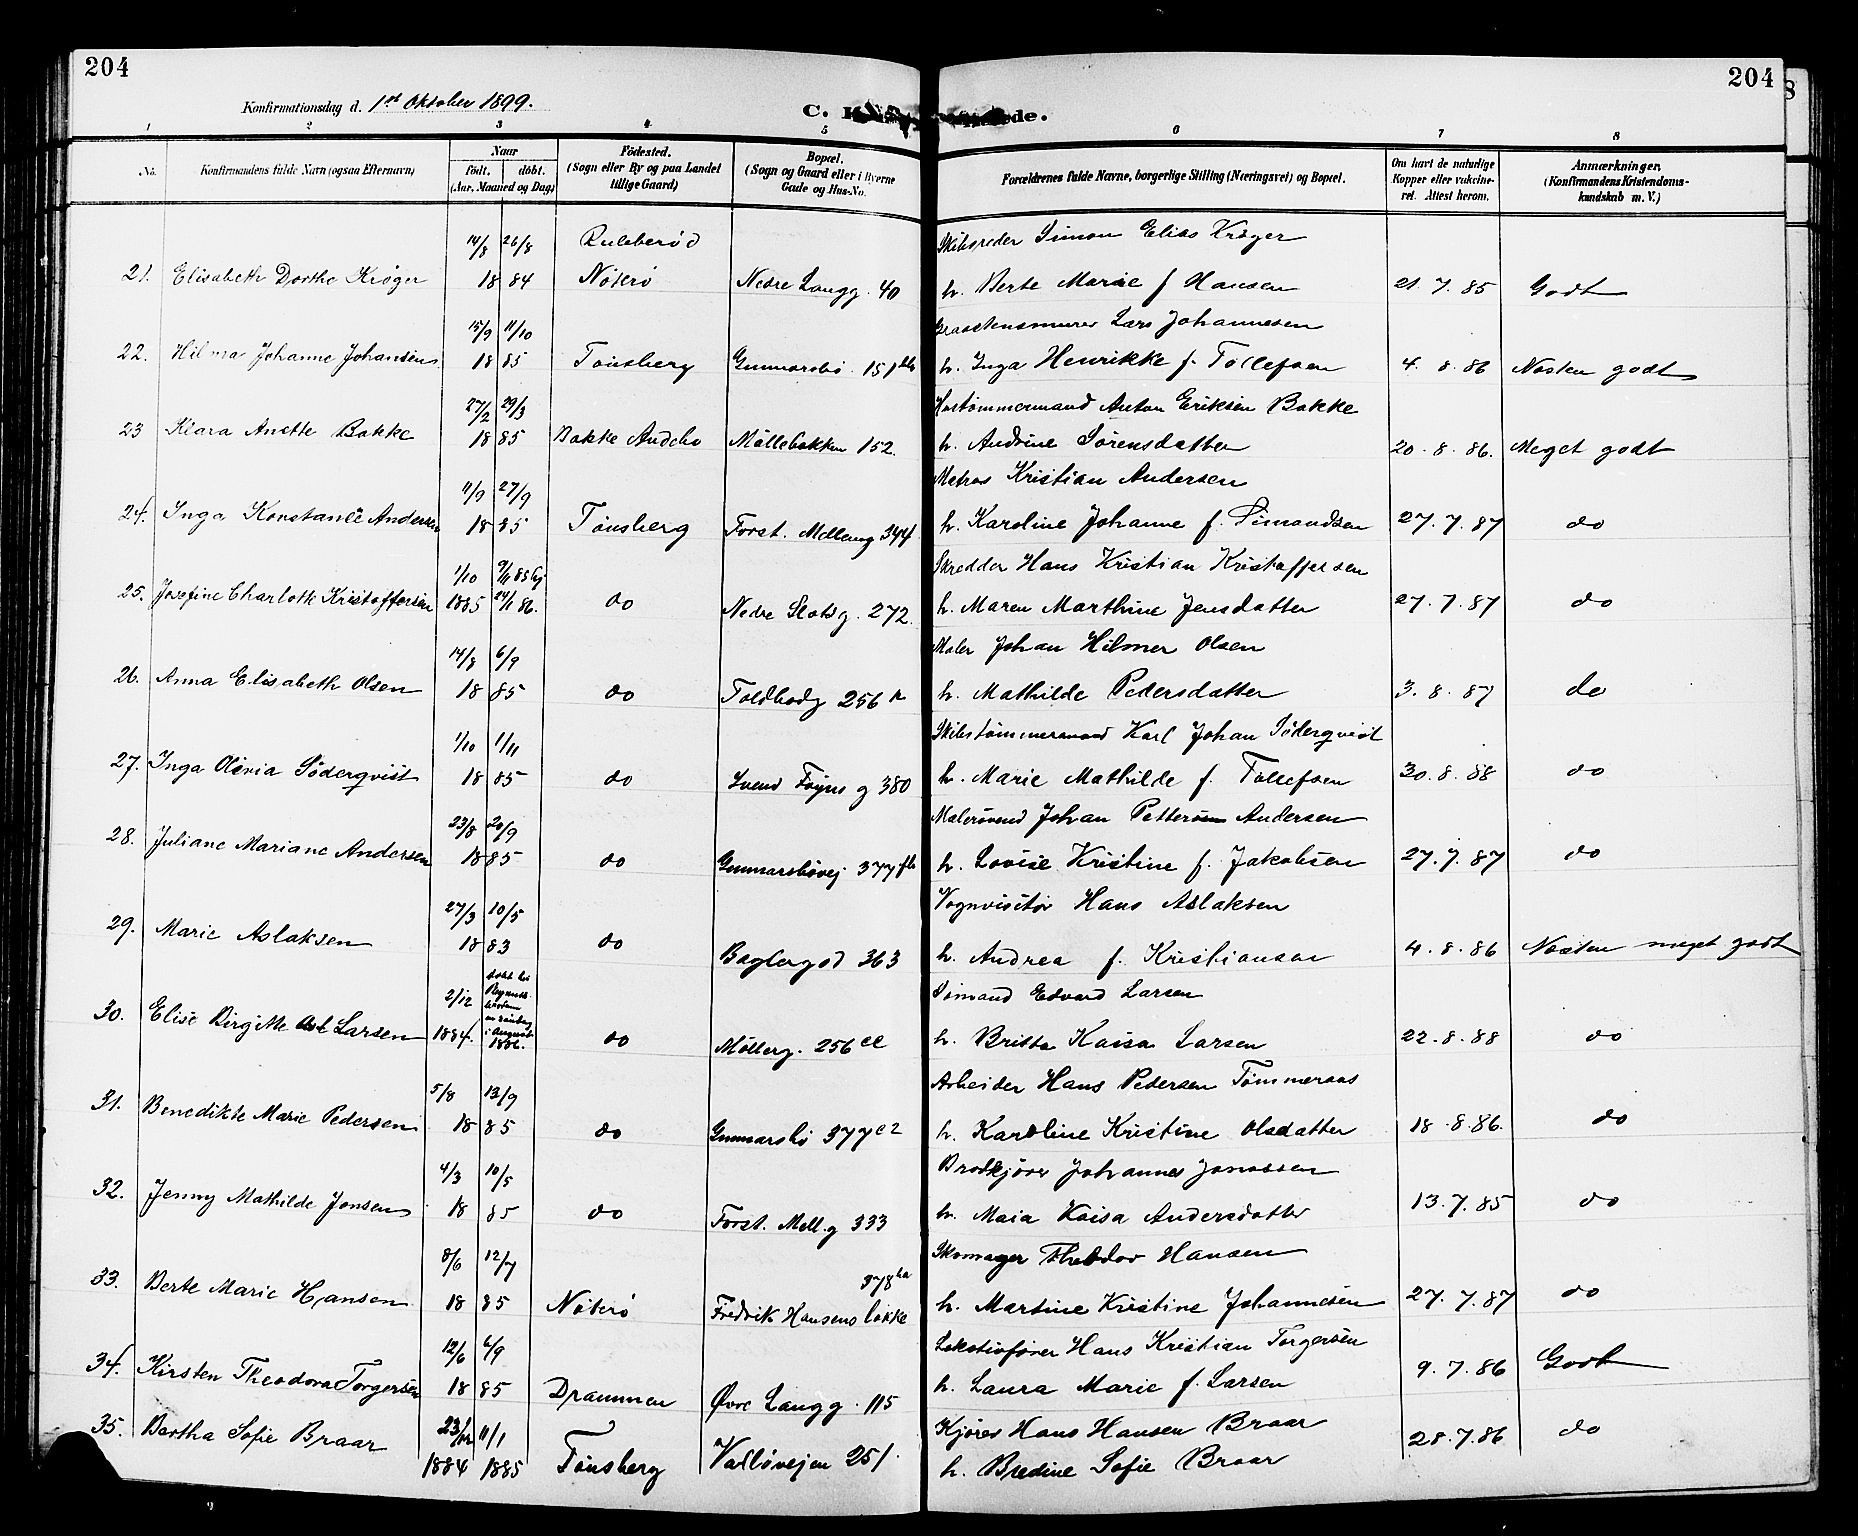 204
204
8
Konfirmationsdag d. 1ste Oktober 1899.
C. K
de.
1 2 3 4 5 6 7 8
No.
Konfirmandens fulde Navn (ogsaa Efternavn)
Naar
født, døbt.
(Aar, Maaned og Dag)
Fødested.
(Sogn eller By og paa Landet
tillige Gaard)
Bopæl.
(Sogn og Gaard eller i Byerne
Gade og Hus-No.
Forældrenes fulde Navne, borgerlige Stilling (Næringsvei) og Bopæl.
Om havt de naturlige
Kopper eller vakcine-
ret. Attest herom.
Anmærkninger,
(Konfirmandens Kristendoms-
kundskab m. V.)
14/8 26/8 Skibsreder Simon Elias Krøger
21. Elisabeth Dorthe Krøger 18 84 Nøterø Nedre Langg. 40 h. Berte Marie f Hansen 21.7.85 Godt
15/9 11/10 Graastensmurer Lars Johannesen
22. Hilma Johanne Johansen 18 85 Tønsberg Gunnarsbø 151 h. Inga Henrikke f. Tollefsen 4.8.86 Næsten godt
27/2 29/3 Hustømmermand Anton Eriksen Bakke
23 Klara Anette Bakke 18 85 Bakke Andebu Møllebakken 152. h. Andrine Sørensdatter 20.8.86. Meget godt
11/9 27/9 Matros Kristian Andersen
24. Inga Konstance Andersen 18 85 Tønsberg Forst. Mellemg 344 h. Karoline Johanne f. Simonsen 27.7.87 do
1/10 9/11 85 hj Skredder Hans Kristian Kristoffersen
25. Josefine Charlotte Kristoffersen 1885 24/1 86. do Nedre Slotsg. 272. h. Maren Marthine Jensdatter 27.7.87 do
14/8 6/9 Maler Johan Hilmer Olsen
26. Anna Elisabeth Olsen 18 85 do Toldbodg 256 h. Mathilde Pedersdatter 3.8.87 do
1/10 1/11 Skibstømmermand Karl Johan Söderqvist
27. Inga Olivia Söderqvist 18 85 do Svend Foyns g 380 h. Marie Mathilde f. Tollefsen 30.8.88 do
23/8 20/9 Malersvend Johan Petter Andersen
28. Juliane Mariane Andersen 18 85 do Gunnarsbøvej 377 h. Lovise Kristine f. Jakobsen 27.7.87 do
27/3 10/5 Vognvisitør Hans Aslaksen
29. Marie Aslaksen 18 83 do Baglergd 363 h. Andrea f. Kristiansen 4.8.86 Næsten meget godt
2/12 Sømand Edvard Larsen
30. Elise Birgitte Larsen 1884. i August 1886. do Møllerg. 256 h. Britta Kaisa Larsen 22.8.88 do
5/8 13/9 Arbeider Hans Pedersen Tømmeraas
31. Benedikte Marie Pedersen 18 85 do Gunnarsbø 377 h. Karoline Kristine Olsdatter 18.8.86. do
4/3 10/5 Brødkjører Johannes Jonassen
32. Jenny Mathilde Jonsen 18 85 do Forst. Mell.g 333 h. Maia Kaisa Andersdatter 13.7.85 do
8/6 12/7 378 Skomager Theodor Hansen
33. Berte Marie Hansen 18 85 Nøterø Fredrik Hansens løkke h. Martine Kristine Johannesen 27.7.87 do
12/6 6/9 Lokotivfører Hans Kristian Torgersen
34. Kirsten Theodora Torgersen 18 85 Drammen Øvre Langg. 115 h. Laura Marie f. Larsen 9.7.86 Godt
23/12 11/1 Kjører Hans Hansen Braar
35. Bertha Sofie Braar 1884 1885 Tønsberg Valløvejen 251. h. Bredine Sofie Braar 28.7.86 do